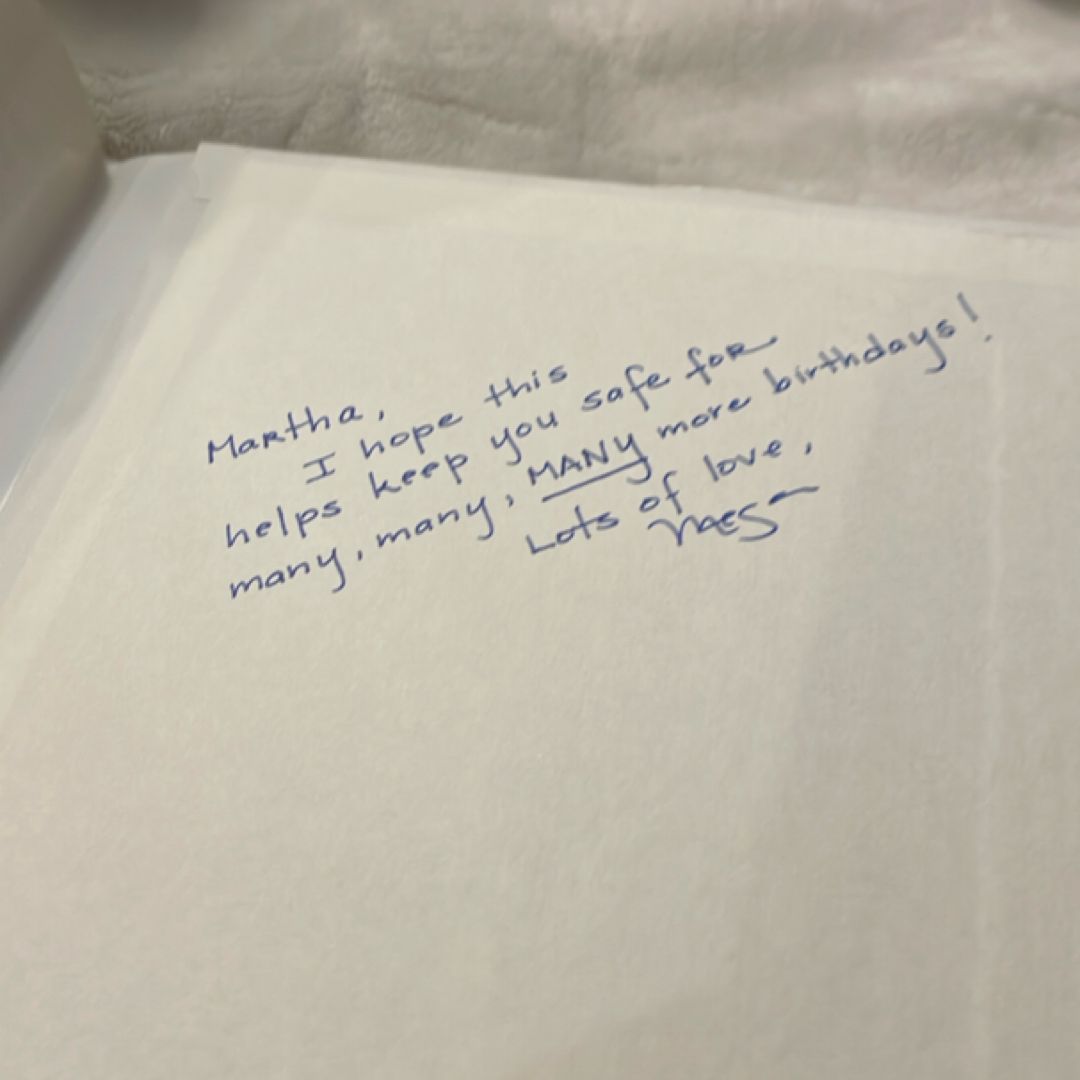 Martha,
I hope this
helps keep you safe for
many, many, MANY more birthdays!
Lots of love,